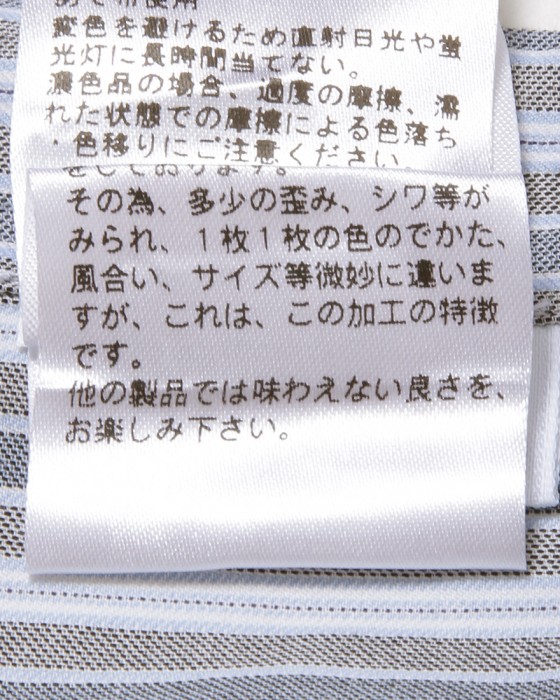 あて布使用
変色を避けるため直射日光や蛍
光灯に長時間当てない。
濃色品の場合、過度の摩擦、濡
れた状態での摩擦による色落ち
・色移りにご注意ください。
をしております。
その為、多少の歪み、シワ等が
みられ、1枚1枚の色のでかた、
風合い、サイズ等微妙に違いま
すが、これは、この加工の特徴
です。
他の製品では味わえない良さを、
お楽しみ下さい。